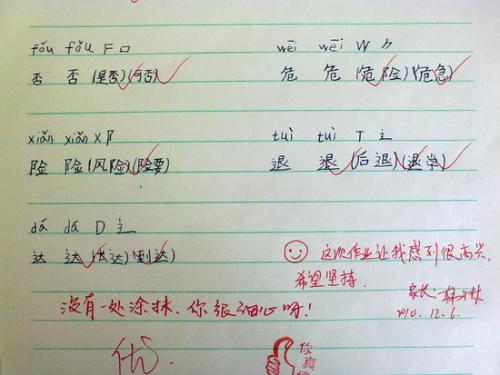 fǒu fǒu F 口 wēi wēi W ⺈
否 否 (是否)(可否) 危 危 (危险)(危急)
xiǎn xiǎn X 阝 tuì tuì T 辶
险 险 (风险)(险要) 退 退 (后退)(退学)
dá dá D 辶
达 达 (发达)(到达)
这次作业让我感到很高兴,
希望坚持.
没有一处涂抹、你很细心呀!
家长:
2010. 12. 6.
优.
你真